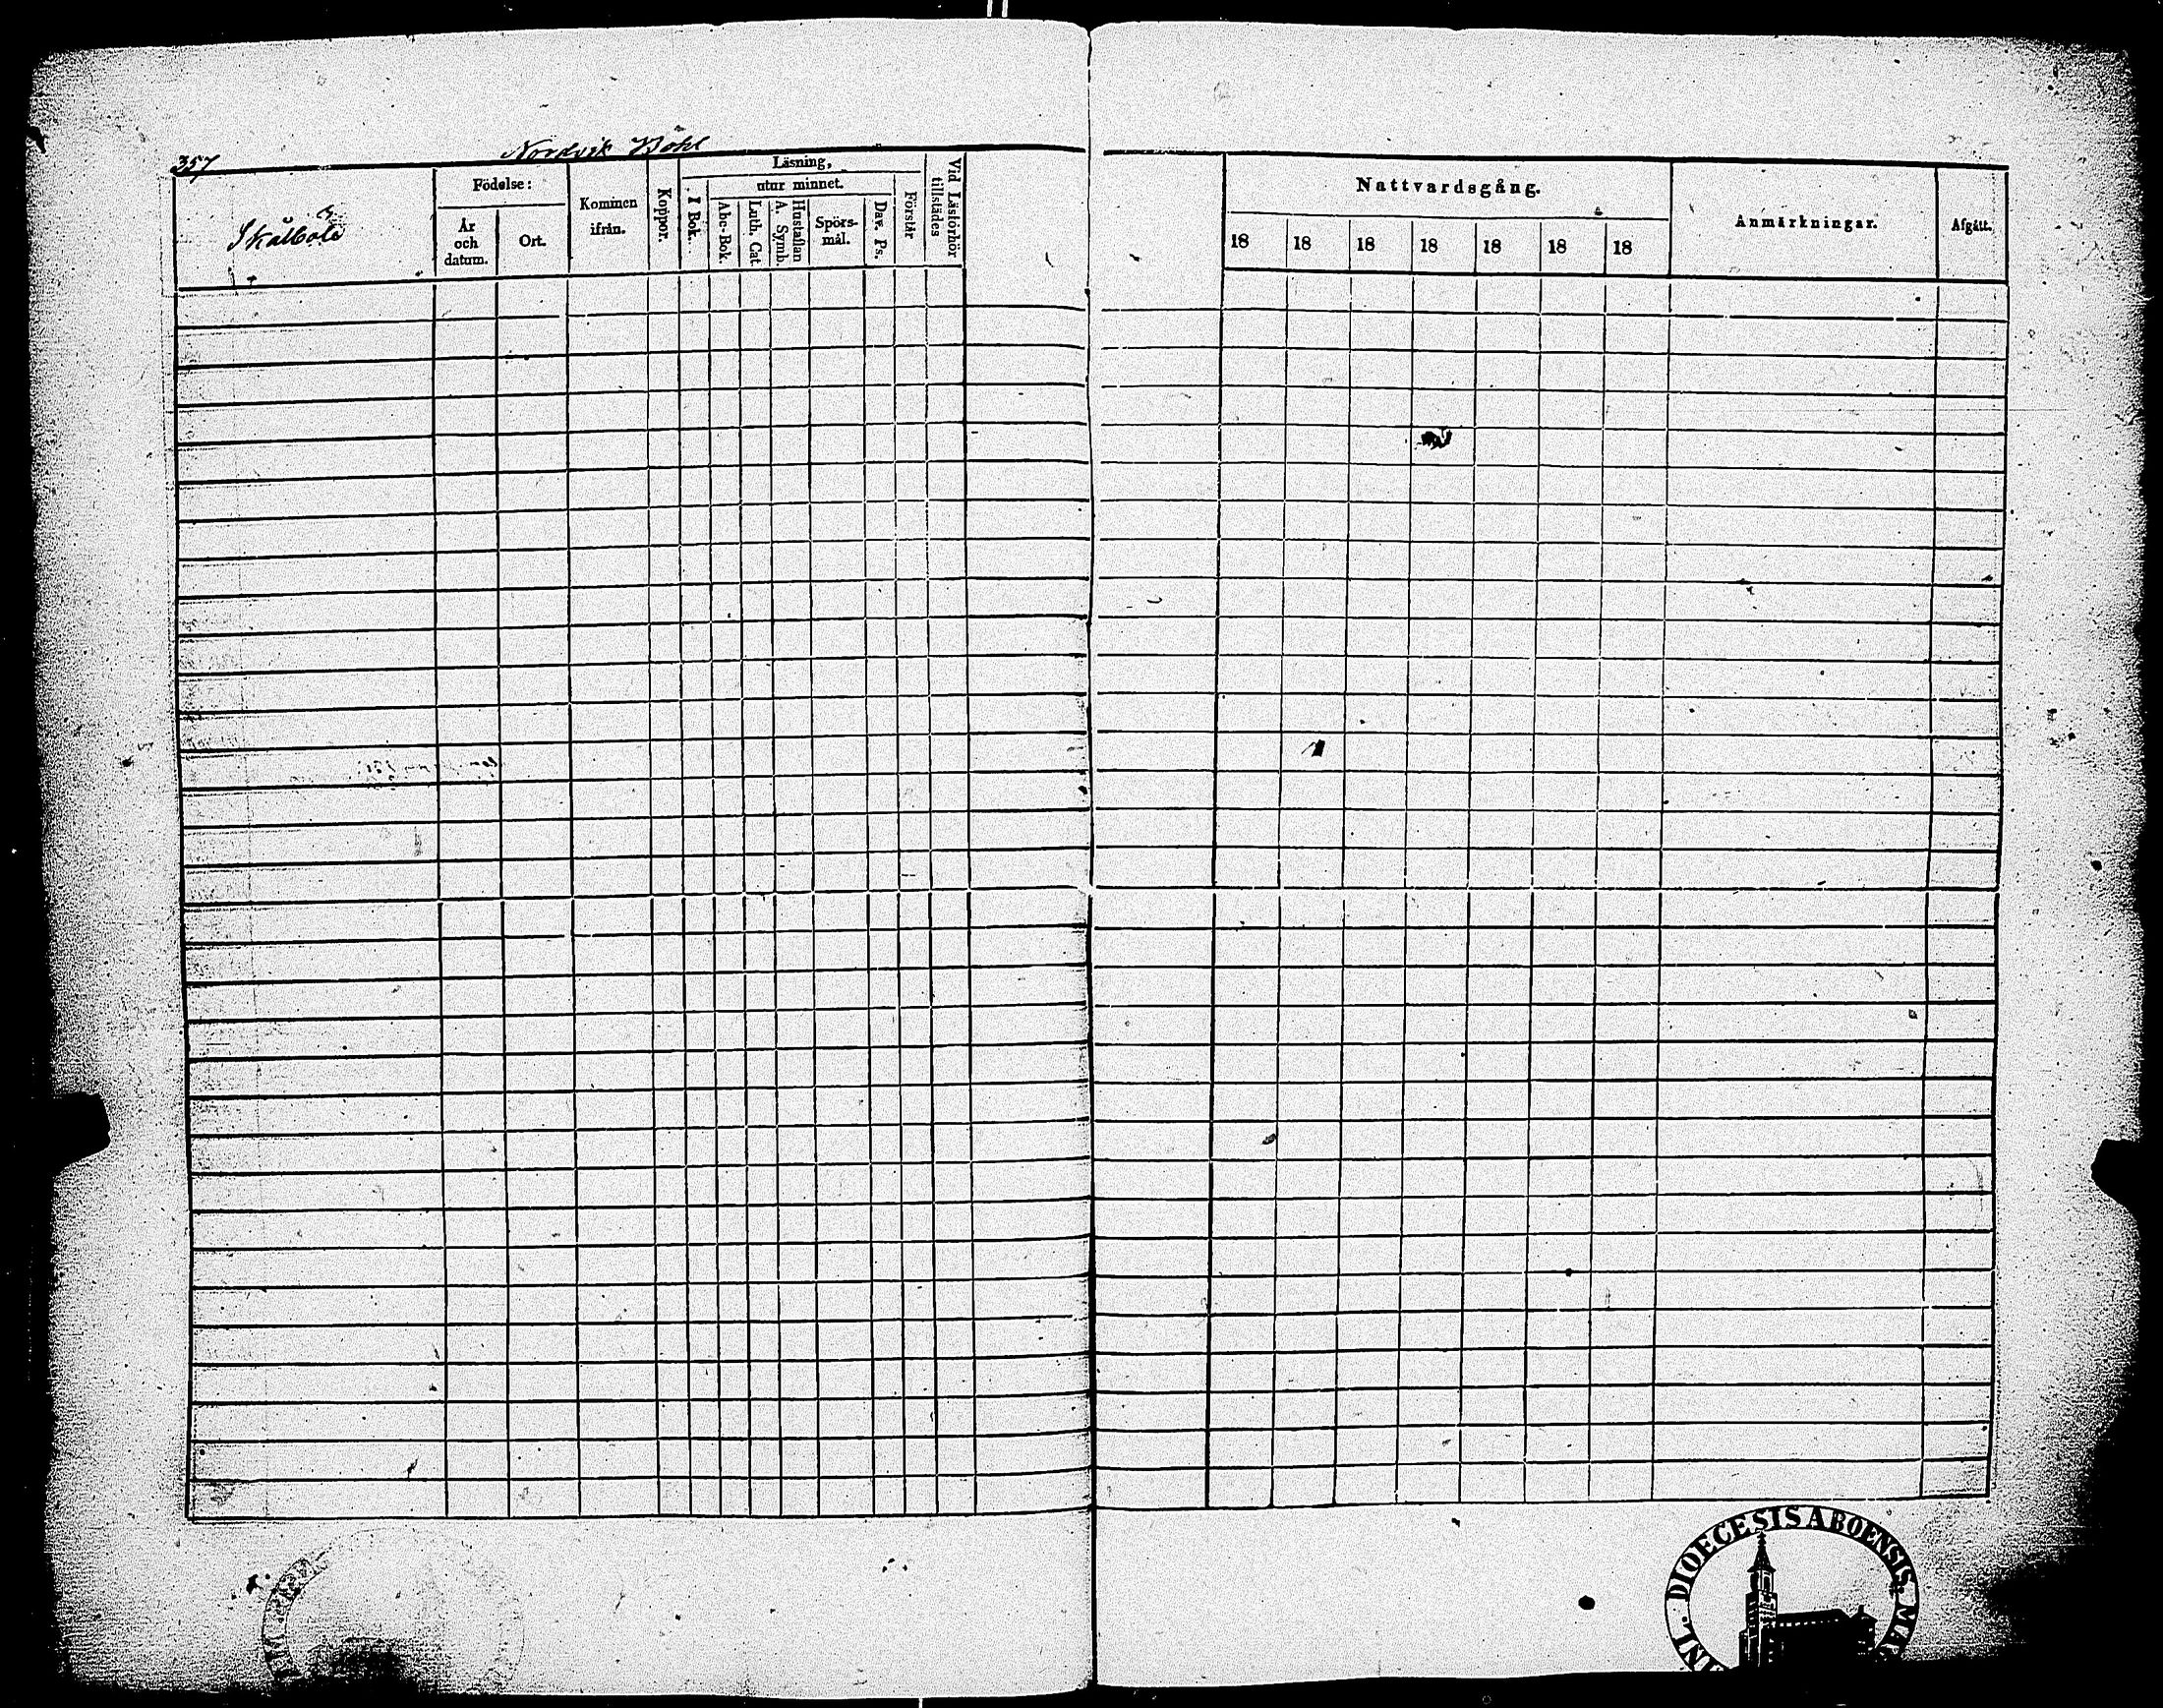 357
Nordvik Böhle
Skålböle
Födelse:
År och datum.
Ort.
Kommen ifrån.
Koppor.
Läsning,
I Bok.
utur minnet.
Abc-Bok.
Luth. Cat
Hustaflan A. Symb.
Spörs-mål.
Dav. Ps.
Förstår
Vid Läsförhör tillstädes
Nattvardsgång.
18 18 18 18 18 18 18
Anmärkningar.
Afgått.
DIOECESIS ABOENSIS